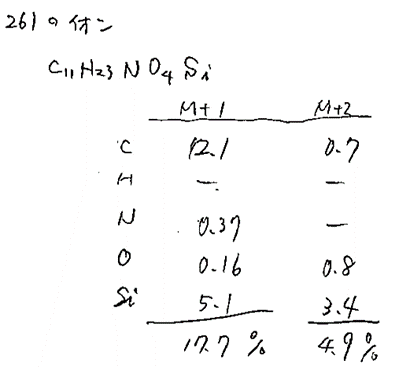 261のイオン
C₁₁H₂₃NO₄Si
M+1 M+2
C 12.1 0.7
H — —
N 0.37 —
O 0.16 0.8
Si 5.1 3.4
17.7 % 4.9 %